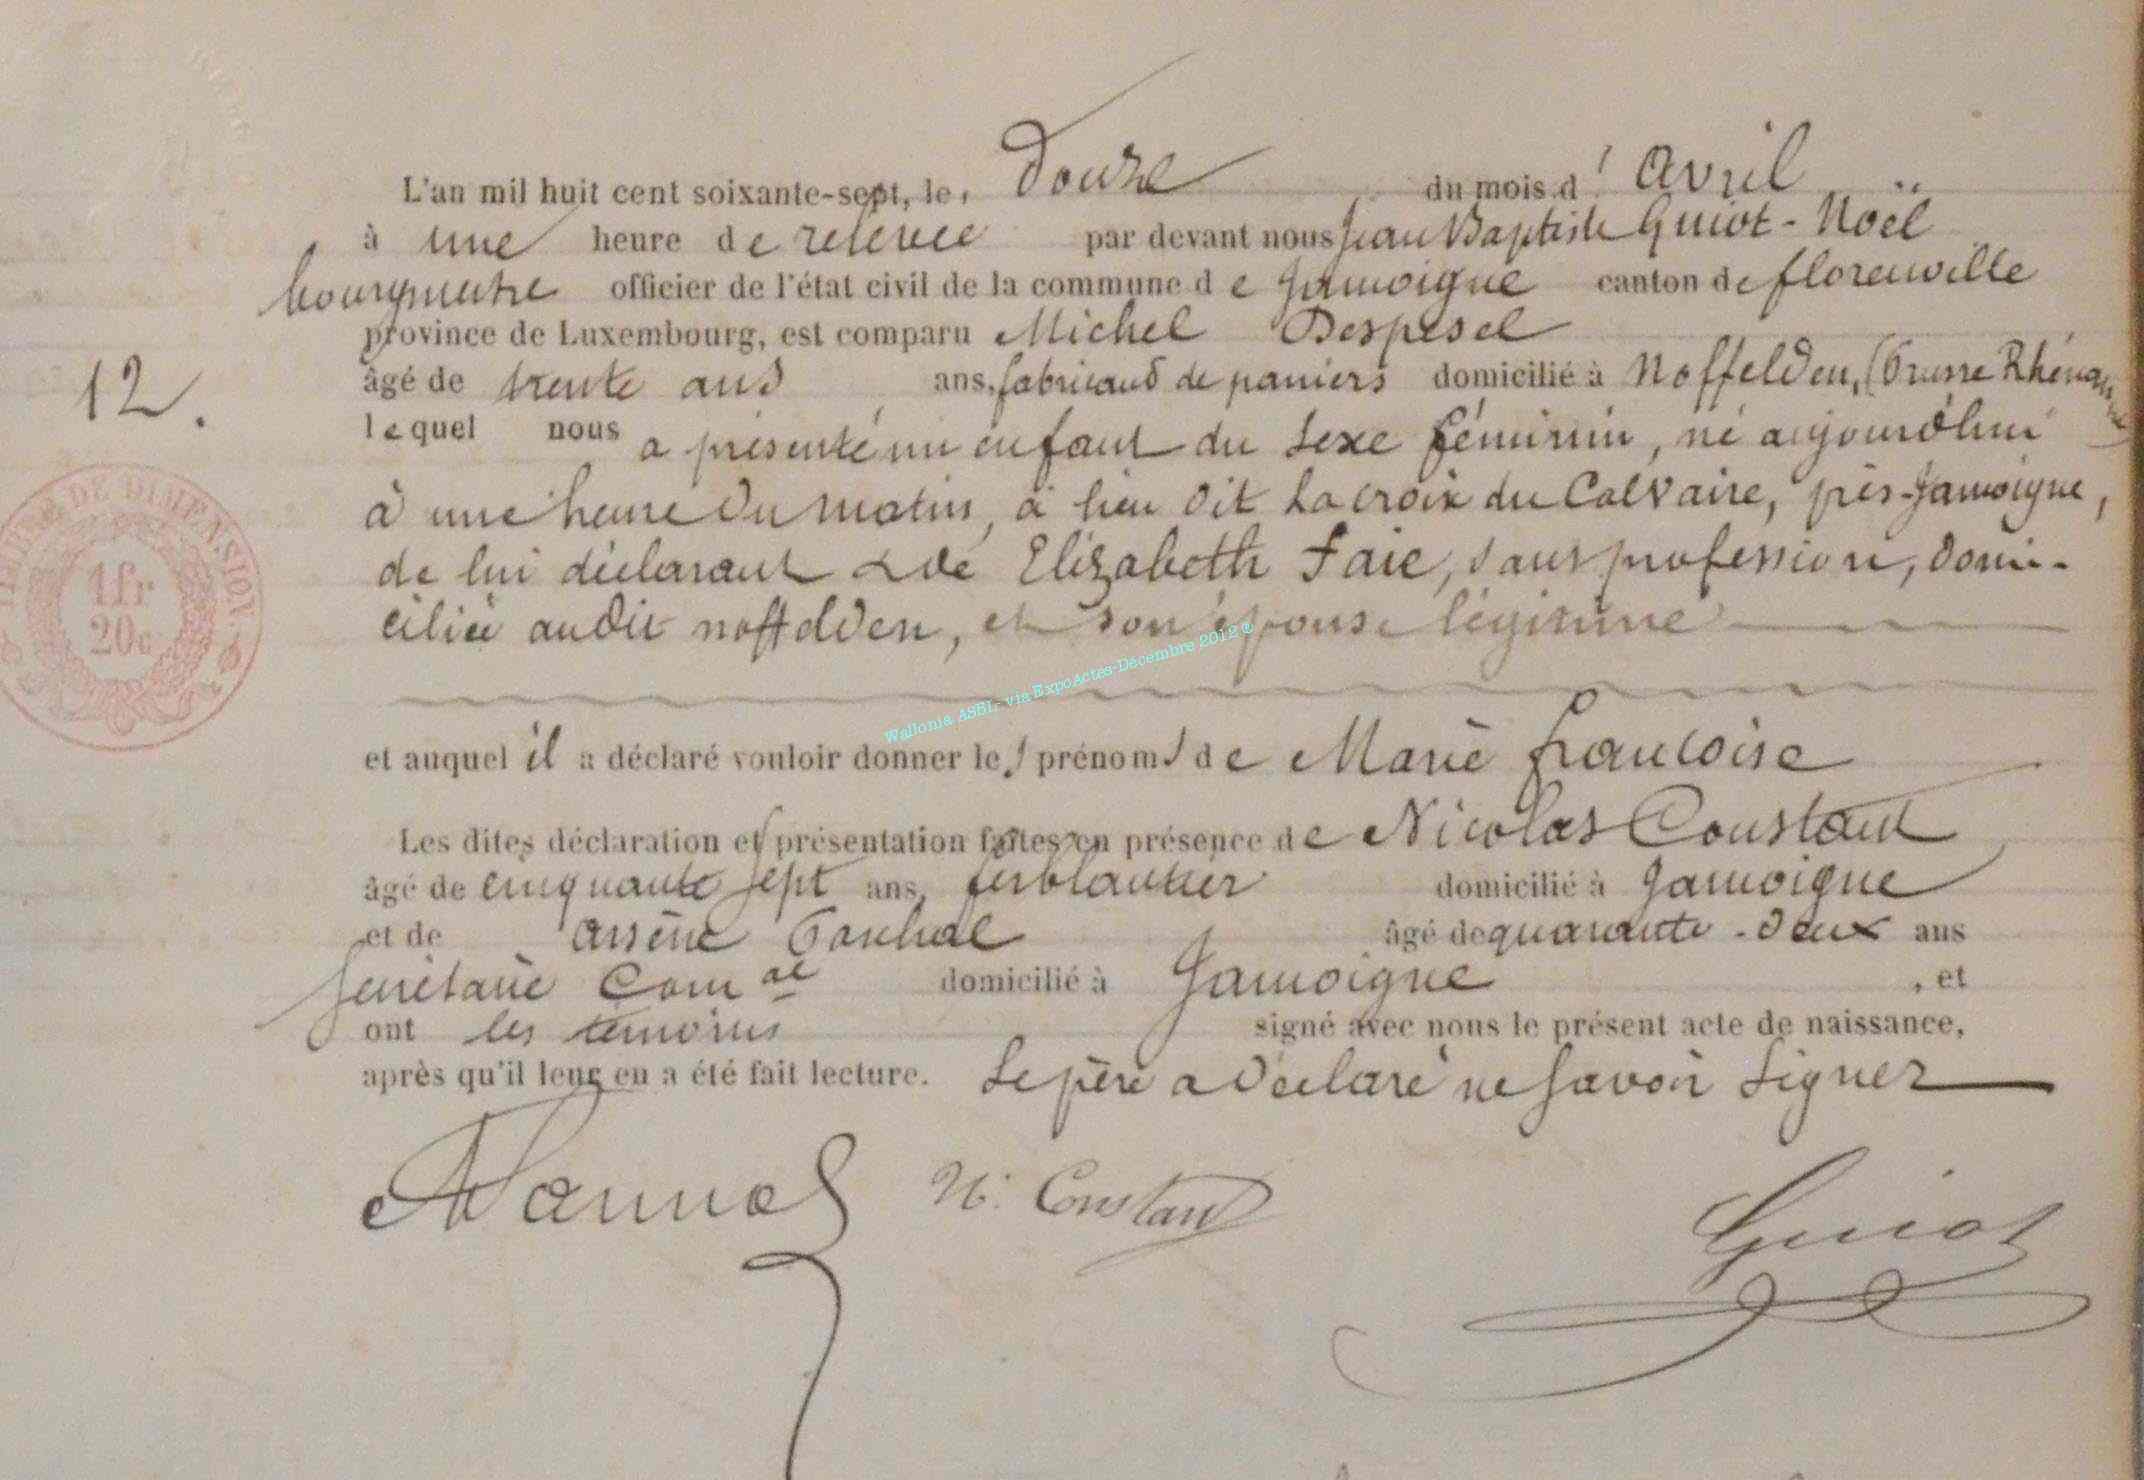 L'an mil huit cent soixante-sept, le, Douze du mois d' avril
à une heure de relevée par devant nous Jean Baptiste Guiot-Noël
bourgmestre officier de l'état civil de la commune de Jamoigne canton de florenville
province de Luxembourg, est comparu Michel Despesel
âgé de trente ans ans, fabricand de paniers domicilié à Noffelden, (Prusse Rhénanne)
12.
lequel nous a présenté un enfant du sexe féminin, né aujourdhui
à une heure du matin, à lieu dit La croix du Calvaire, près-Jamoigne,
de lui déclarant & de Elizabeth Faie, sans profession, domi-
ciliée audit noffelden, et son épouse légitime
TIMBRE DE DIMENSION.
1fr
20c
Wallonia ASBL- via ExpoActes-Décembre 2012 ®
et auquel il a déclaré vouloir donner les prénoms de Marie francoise
Les dites déclaration et présentation faites en présence de Nicolas Constant
âgé de cinquante sept ans, ferblantier domicilié à Jamoigne
et de arsène âgé de quarante-deux ans
secrétaire Comal domicilié à Jamoigne , et
ont les témoins signé avec nous le présent acte de naissance,
après qu'il leur en a été fait lecture. Le père a déclaré ne savoir signer
N. Constant Guiot